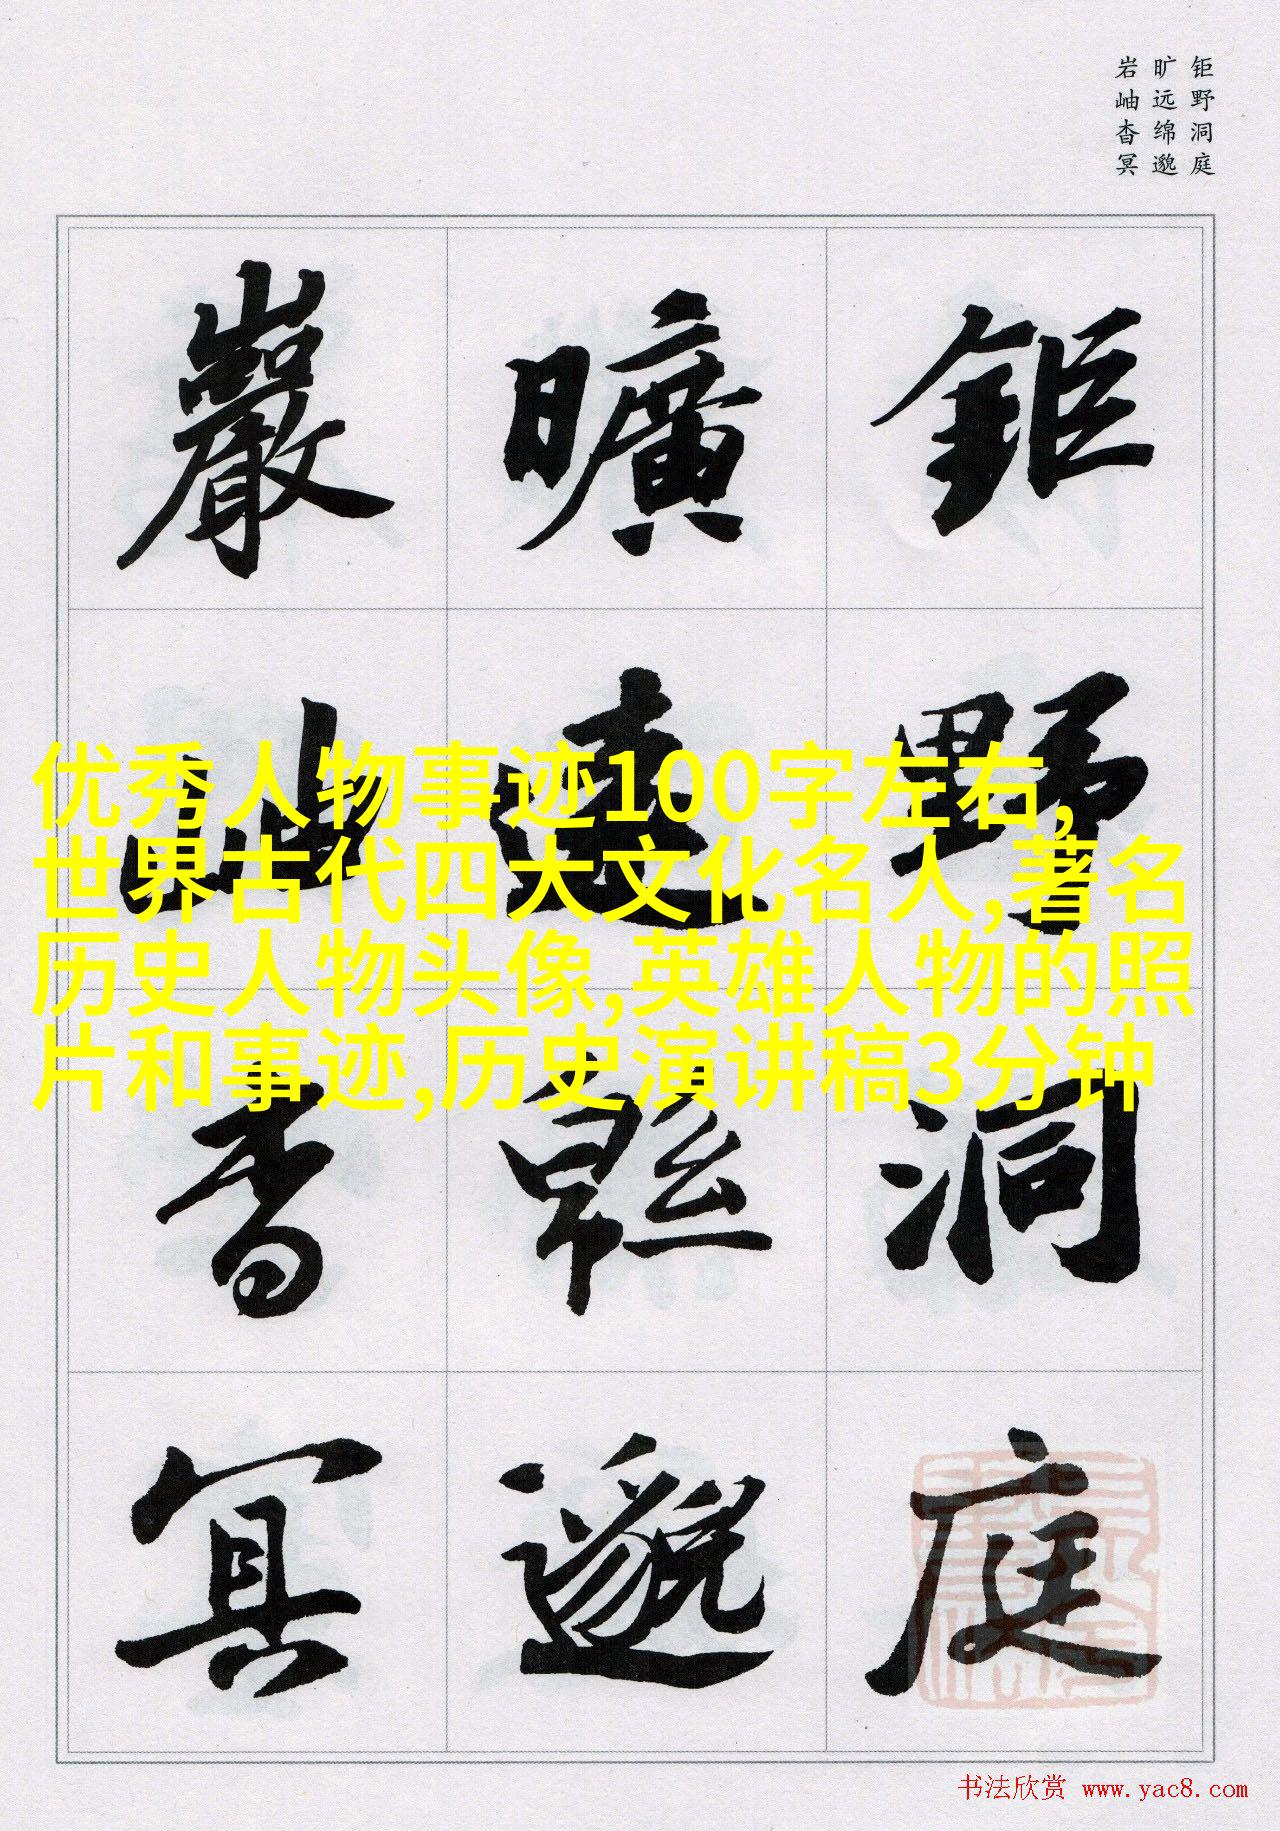 钜野洞庭
旷远绵邈
岩岫杳冥
鉅野洞庭
曠遠緜邈
巖岫杳冥
优秀人物事迹100字左右,
世界古代四大文化名人,著名
历史人物头像,英雄人物的照
片和事迹,历史演讲稿3分钟
书法欣赏 www.yac8.com